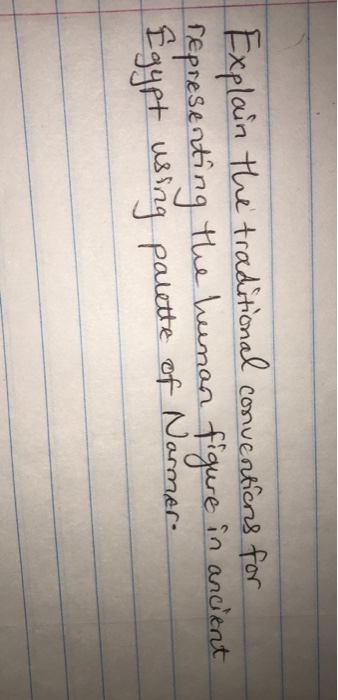 Explain the traditional conventions for
representing the human figure in ancient
Egypt using palette of Narmer.